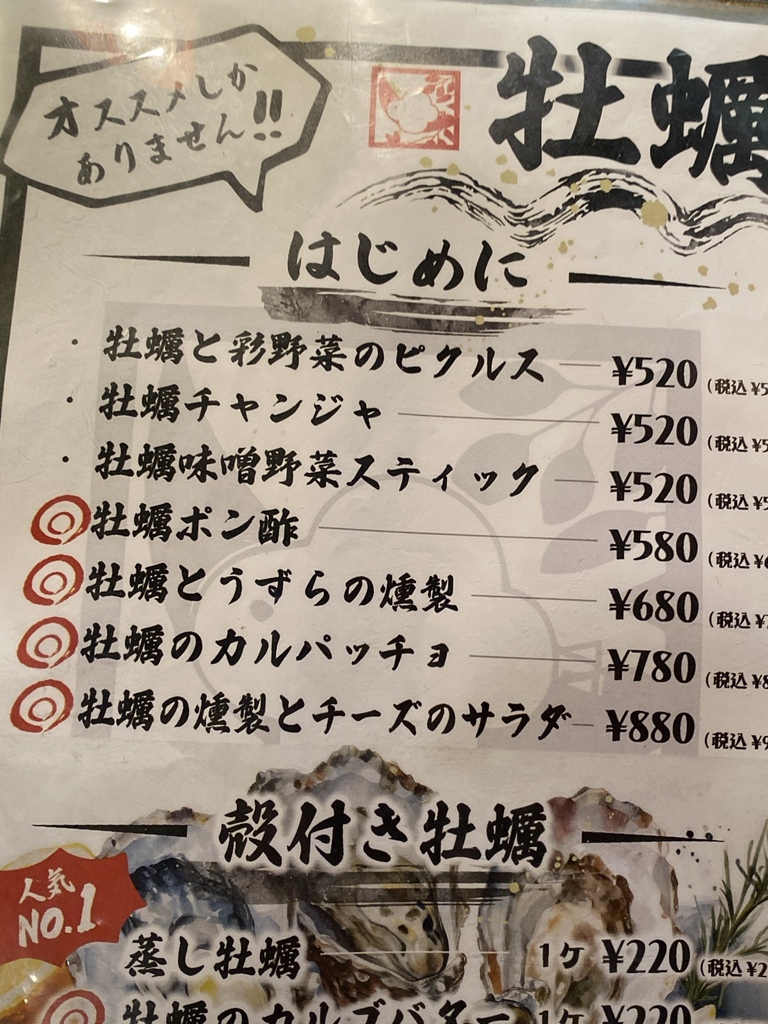 オススメしか
ありません!!
牡蠣
はじめに
・牡蠣と彩野菜のピクルス ¥520 (税込 ¥5
・牡蠣チャンジャ ¥520 (税込 ¥5
・牡蠣味噌野菜スティック ¥520 (税込 ¥5
牡蠣ポン酢 ¥580 (税込 ¥6
牡蠣とうずらの燻製 ¥680 (税込 ¥7
牡蠣のカルパッチョ ¥780 (税込 ¥8
牡蠣の燻製とチーズのサラダ ¥880 (税込 ¥9
殻付き牡蠣
人気
NO.1
蒸し牡蠣 1ケ ¥220 (税込 ¥2
牡蠣のカルブバター 1ケ ¥220